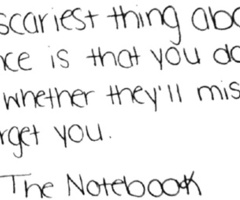 scariest thing abo
nce is that you do
whether they'll mis
rget you.
The Notebook